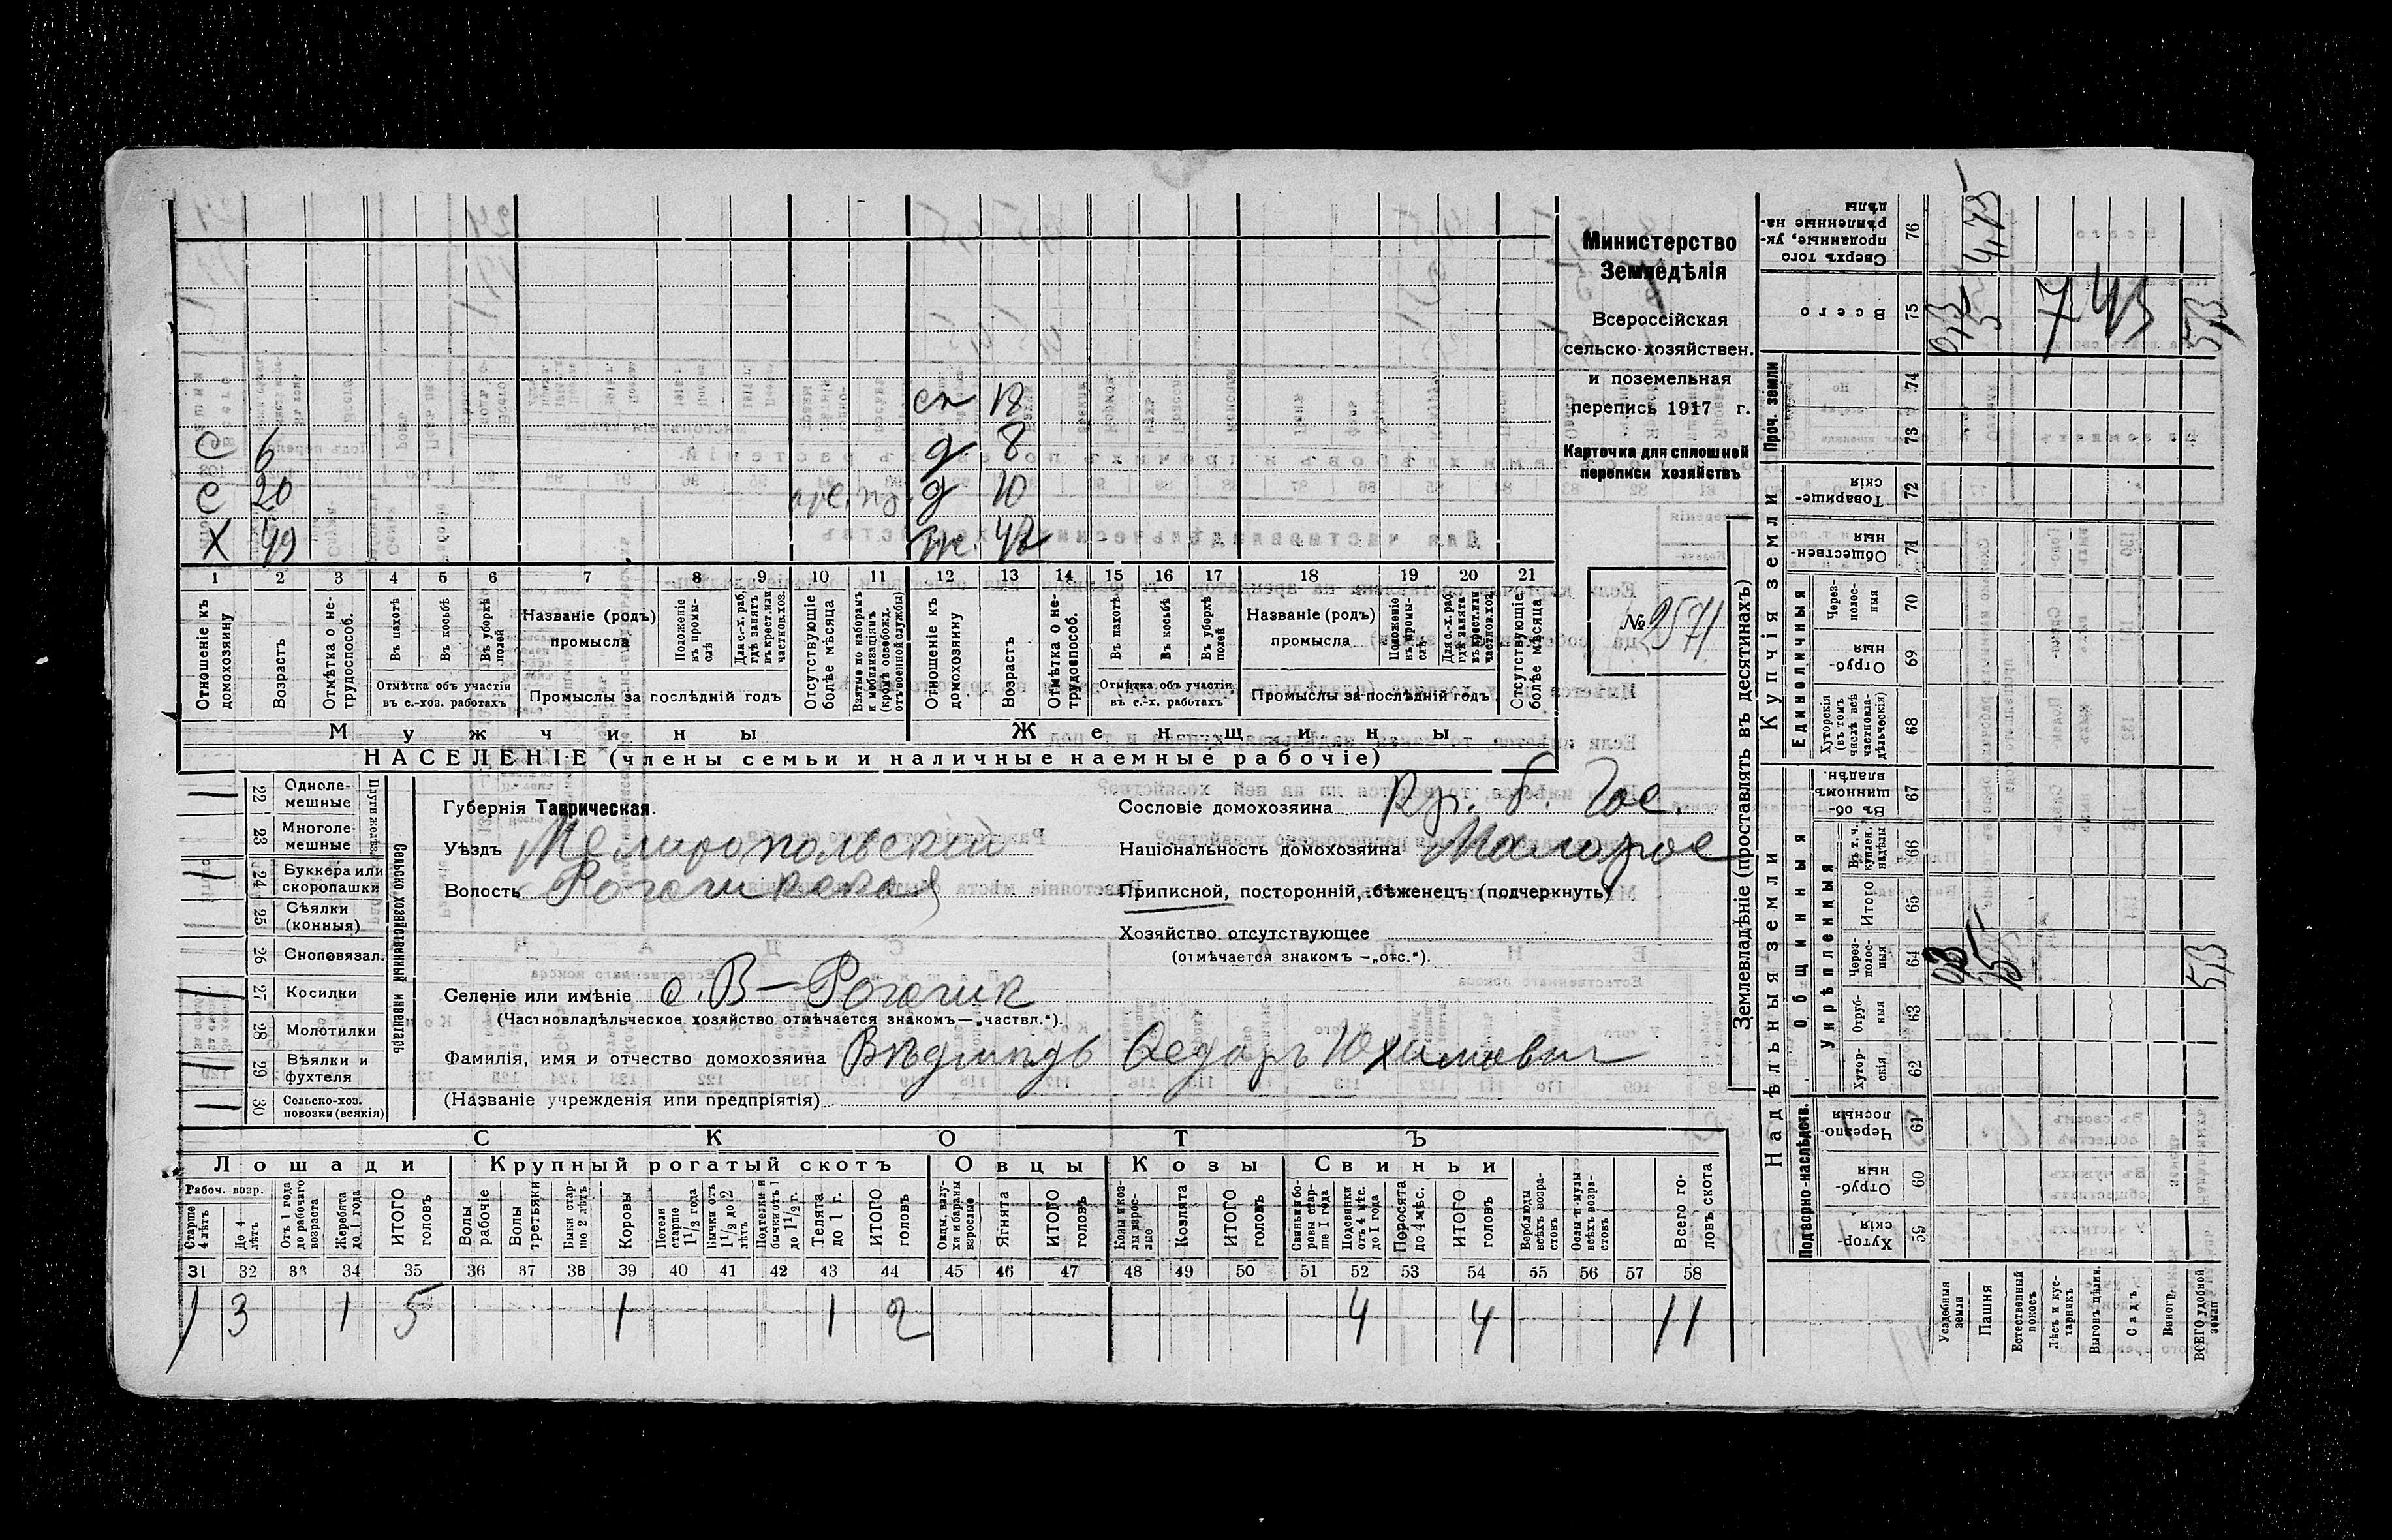 Министерство
Земледѣлія
Всероссійская
сельско-хозяйствен.
и поземельная
перепись 1917 г.
Карточка для сплошной
переписи хозяйствъ
№ 2571
сп 18
С 6 д 8
С 20 д 10
Х 49 же. 42
1 2 3 4 5 6 7 8 9 10 11 12 13 14 15 16 17 18 19 20 21
Отношеніе къ домохозяину
Возрастъ
Отмѣтка о нетрудоспособ.
Въ пахотѣ
Въ косьбѣ
Въ уборкѣ полей
Отмѣтка объ участіи въ с.-хоз. работахъ
Названіе (родъ) промысла
Положеніе въ промыслѣ
Для с.-х. раб. гдѣ занятъ въ крест. или частнов. хоз.
Промыслы за послѣдній годъ
Отсутствующіе болѣе мѣсяца
Взятые по наборамъ и мобилизаціямъ (кромѣ освобожд. отъ военной службы)
Отношеніе къ домохозяину
Возрастъ
Отмѣтка о нетрудоспособ.
Въ пахотѣ
Въ косьбѣ
Въ уборкѣ полей
Отмѣтка объ участіи въ с.-х. работахъ
Названіе (родъ) промысла
Положеніе въ промыслѣ
Для с.-х. раб. гдѣ занята въ крест. или частнов. хоз.
Промыслы за послѣдній годъ
Отсутствующіе болѣе мѣсяца
Мужчины Женщины
НАСЕЛЕНІЕ (члены семьи и наличные наемные рабочіе)
22 Однолемешные
23 Многолемешные
Плуги желѣз.
24 Буккера или скоропашки
25 Сѣялки (конныя)
26 Сноповязал.
27 Косилки
28 Молотилки
29 Вѣялки и фухтеля
30 Сельско-хоз. повозки (всякія)
Сельско-хозяйственный инвентарь
Губернія Таврическая.
Уѣздъ Мелитопольскій
Волость Рогачикская
Сословіе домохозяина Кр. б. Гос.
Національность домохозяина Малорос
Приписной, посторонній, бѣженецъ (подчеркнуть)
Хозяйство отсутствующее
(отмѣчается знакомъ —„отс.“).
Селеніе или имѣніе с. В-Рогачик
(Частновладѣльческое хозяйство отмѣчается знакомъ—„частвл.“).
Фамилія, имя и отчество домохозяина Федоръ Юхимович
(Названіе учрежденія или предпріятія)
СКОТЪ
Лошади Крупный рогатый скотъ Овцы Козы Свиньи
Рабоч. возр.
Старше 4 лѣтъ
До 4 лѣтъ
Отъ 1 года до рабочаго возраста
Жеребята до 1 года
ИТОГО головъ
Волы рабочіе
Волы третьяки
Быки старше 2 лѣтъ
Коровы
Нетели старше 1 1/2 года
Бычки отъ 1 1/2 до 2 лѣтъ
Подтелки и бычки отъ 1 до 1 1/2 г.
Телята до 1 г.
ИТОГО головъ
Овцы, валухи и бараны взрослые
Ягнята
ИТОГО головъ
Козы и козлы взрослые
Козлята
ИТОГО головъ
Свиньи и боровы старше 1 года
Подсвинки отъ 4 мѣс. до 1 года
Поросята до 4 мѣс.
ИТОГО головъ
Верблюды всѣхъ возрастовъ
Ослы и мулы всѣхъ возрастовъ
Всего головъ скота
31 32 33 34 35 36 37 38 39 40 41 42 43 44 45 46 47 48 49 50 51 52 53 54 55 56 57 58
1 3 1 5 1 1 2 4 4 11
Землевладѣніе (проставлять въ десятинахъ)
Надѣльныя земли Купчія земли Проч. земли
Подворно-наслѣдств. Общинныя Единоличныя
Укрѣпленныя
Сверхъ того проданные, укрѣпленные надѣлы 76
Всего 75
74
73
Товарищескія 72
Общественныя 71
Черезполосныя 70
Отрубныя 69
Хуторскія (въ томъ числѣ всѣ частновладѣльческія) 68
Въ общинномъ владѣн. 67
Въ т. ч. куплен. надѣлы 66
Итого 65
Черезполосныя 64
Отрубныя 63
Хуторскія 62
Черезполосныя 61
Отрубныя 60
Хуторскія 59
Усадебныя земли
Пашня
Естественный покосъ
Лѣсъ и кустарникъ
Выгонъ дѣлин.
Садъ
Виногр.
ВСЕГО удобной земли